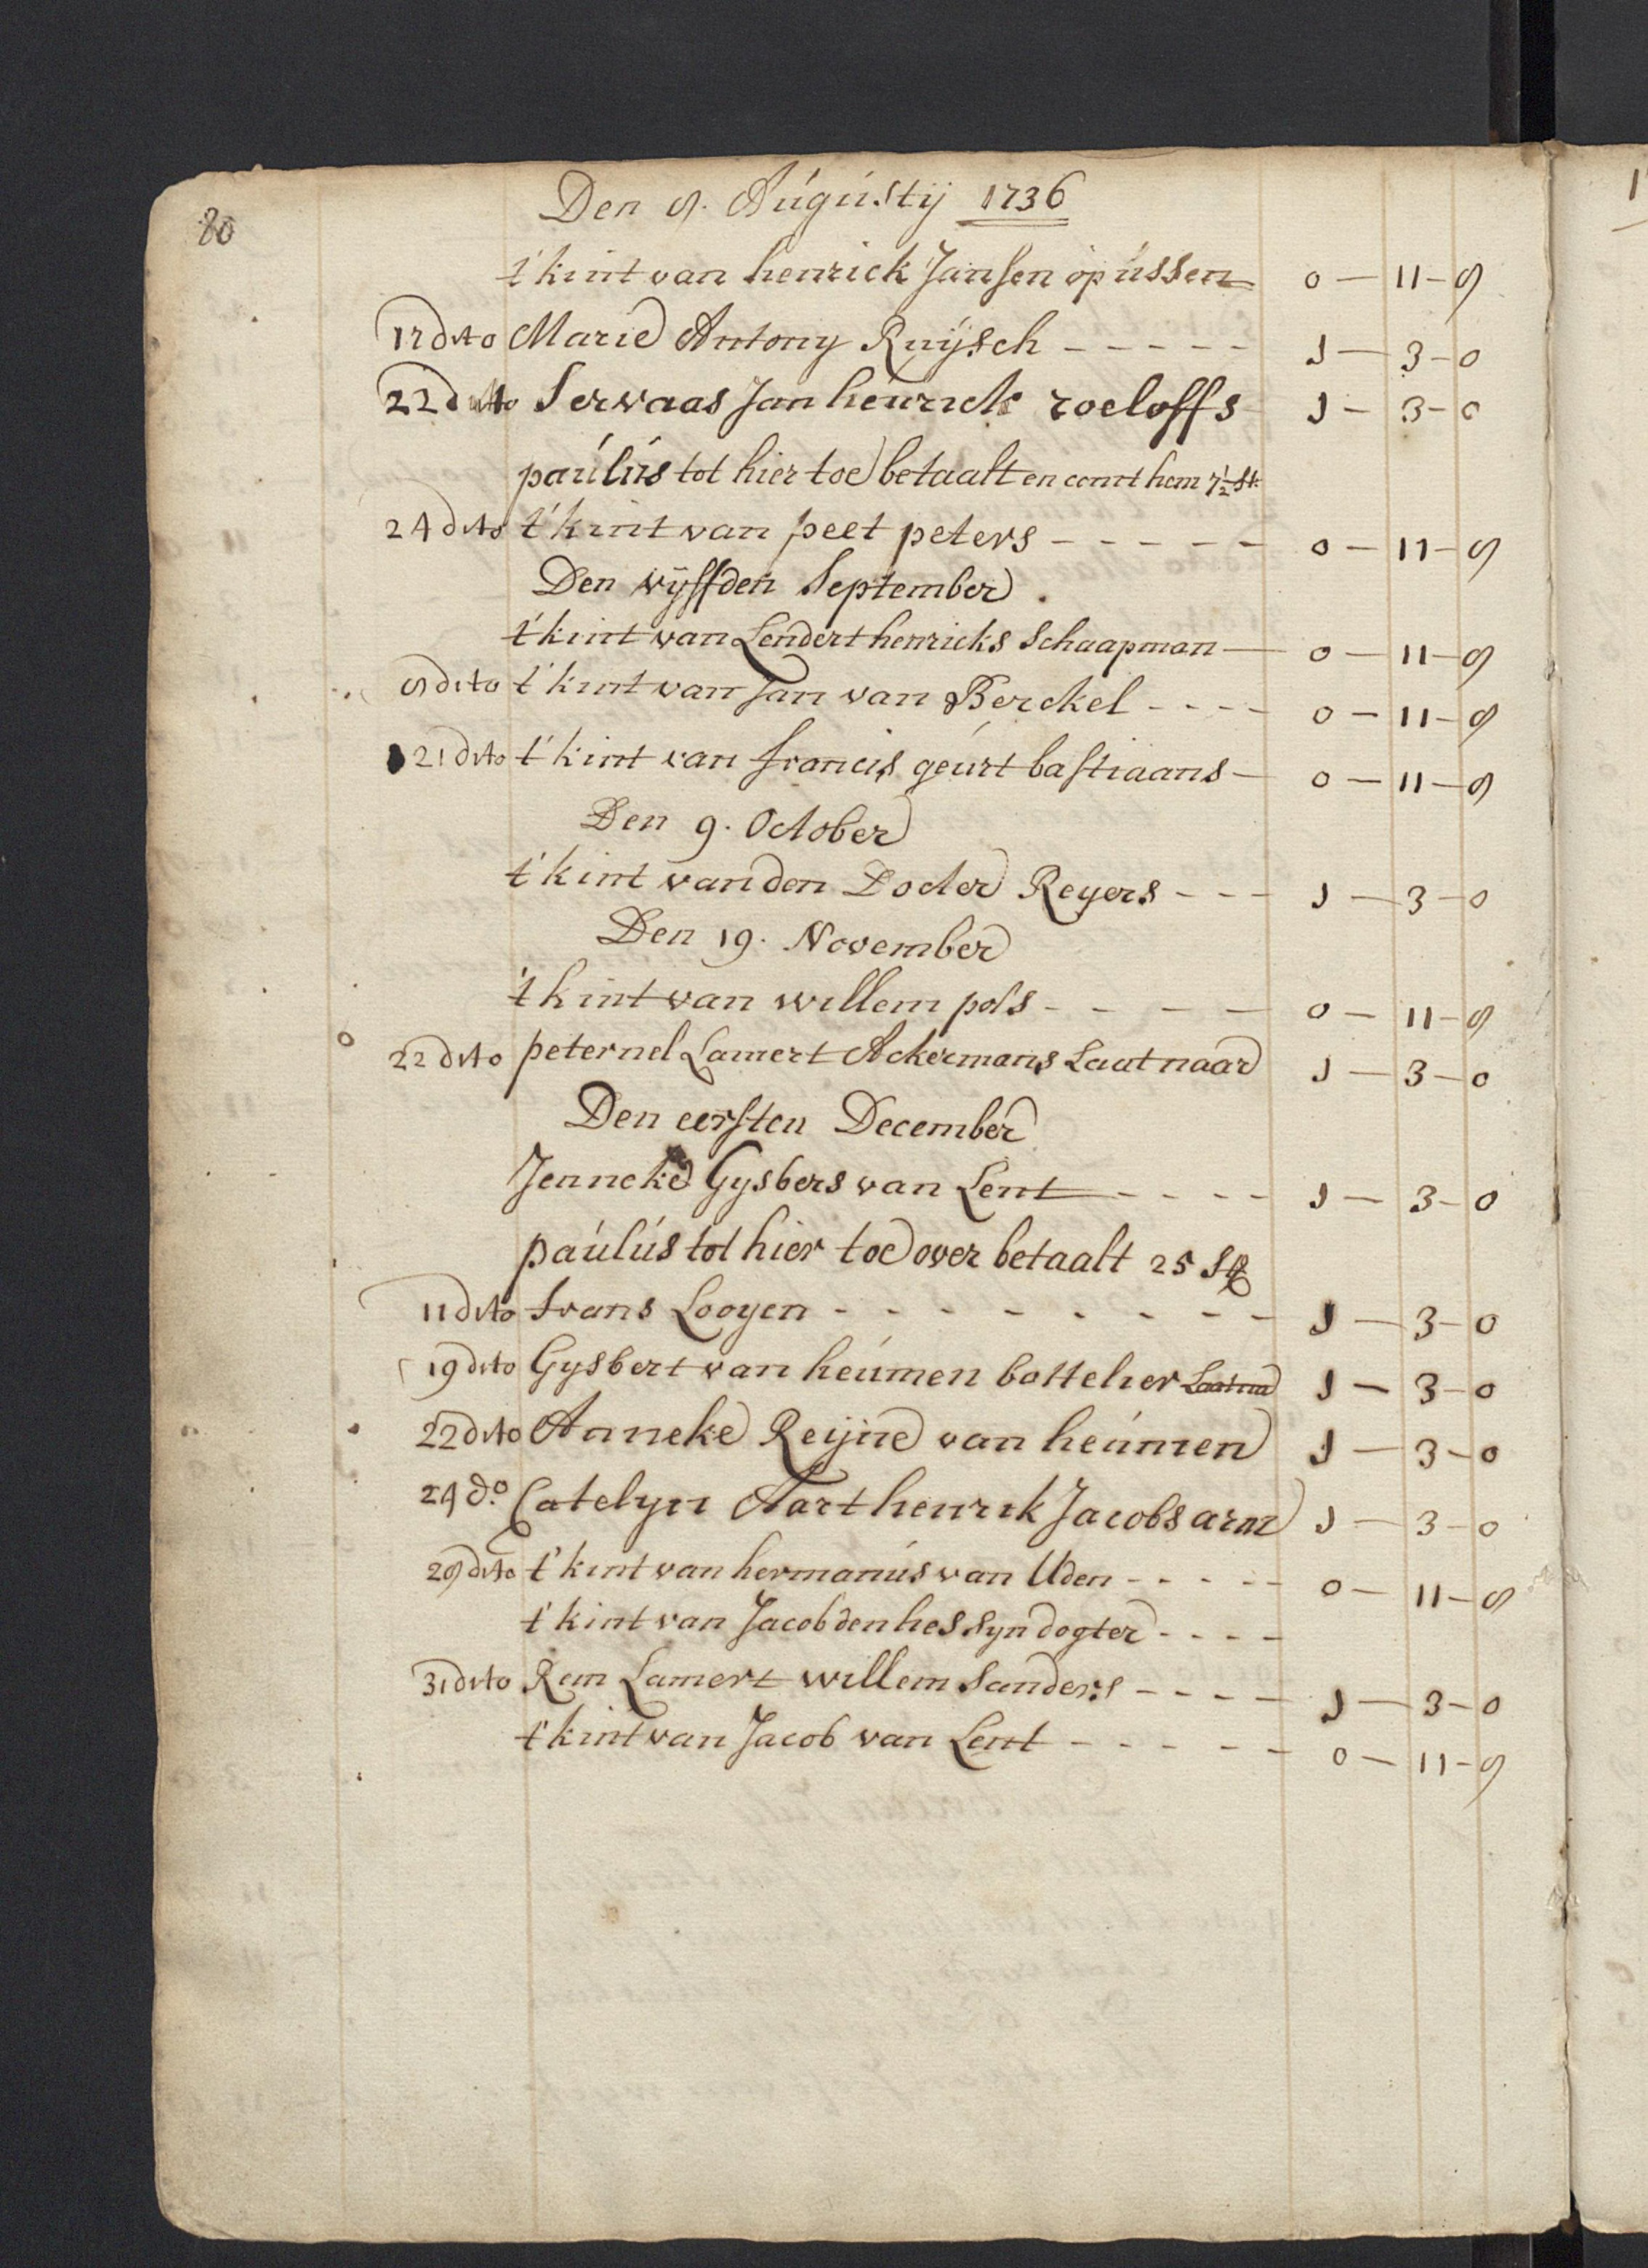 80
Den 9. Augustij 1736
t'kint van henrick Jansen op ussen 0 — 11 — 9
12 dito Marie Antony Ruijsch - - - - - 1 — 3 — 0
22 dito Servaas Jan henrick roeloffs 1 — 3 — 0
paulus tot hier toe betaalt en comt hem 7 1/2 st:
24 dito t'kint van peet peters - - - - - 0 — 11 — 9
Den vyffden September.
t'kint van Lendert henricks Schaapman — 0 — 11 — 9
9 dito t'kint van Jan van Berckel - - - - 0 — 11 — 9
21 dito t'kint van francis geurt bastiaans — 0 — 11 — 9
Den 9. October
t'kint van den Docter Reyers - - - 1 — 3 — 0
Den 19. November
't kint van willem pols - - - - 0 — 11 — 9
22 dito peternel Lamert Ackermans Laat naar 1 — 3 — 0
Den eersten December
Jenneke Gysbers van Lent - - - - 1 — 3 — 0
paulus tot hier toe over betaalt 25 st
11 dito frans Looyen - - - - - - - - 1 — 3 — 0
19 dito Gysbert van heumen bottelier 1 — 3 — 0
22 dito Anneke Reijne van heumen 1 — 3 — 0
24 do. Catelyn Aart henrik Jacobs arm 1 — 3 — 0
29 dito t'kint van hermanus van Uden - - - - - 0 — 11 — 9
t'kint van Jacob den hes syn dogter - - - -
31 dito Rein Lamert willem Sanders - - - - 1 — 3 — 0
t'kint van Jacob van Lent - - - - - 0 — 11 — 9